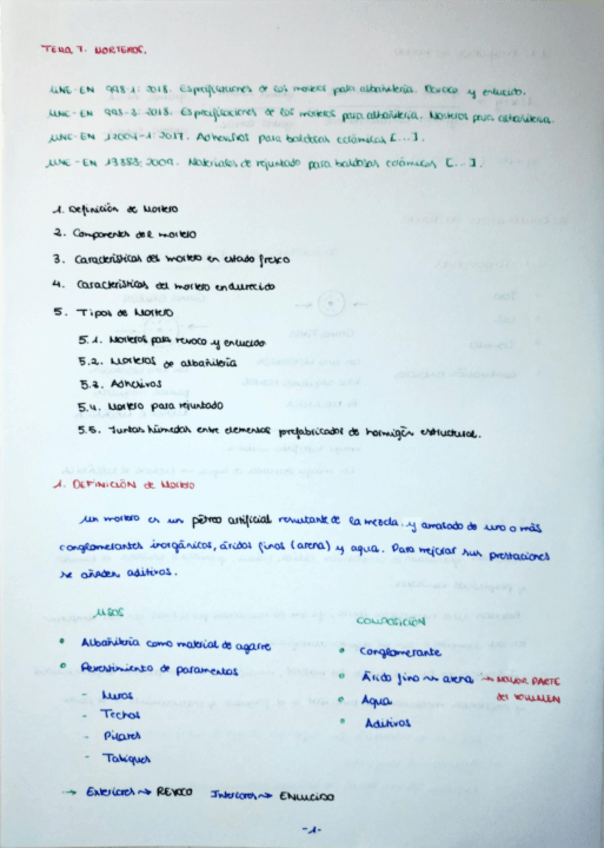 TEMA 7. MORTEROS.
UNE-EN 998-1:2018. Especificaciones de los morteros para albañilería. Revoco y enlucido.
UNE-EN 998-2:2018. Especificaciones de los morteros para albañilería. Morteros para albañilería.
UNE-EN 12004-1:2017. Adhesivos para baldosas cerámicas [...].
UNE-EN 13888:2009. Materiales de rejuntado para baldosas cerámicas [...].
1. Definición de Mortero
2. Componentes del mortero
3. Características del mortero en estado fresco
4. Características del mortero endurecido
5. Tipos de Mortero
5.1. Morteros para revoco y enlucido
5.2. Morteros de albañilería
5.3. Adhesivos
5.4. Mortero para rejuntado
5.5. Juntas húmedas entre elementos prefabricados de hormigón estructural.
1. DEFINICIÓN de Mortero
Un mortero es un pétreo artificial resultante de la mezcla y amasado de uno o más
conglomerantes inorgánicos, áridos finos (arena) y agua. Para mejorar sus prestaciones
se añaden aditivos.
USOS
• Albañilería como material de agarre
• Revestimiento de paramentos
- Muros
- Techos
- Pilares
- Tabiques
→ Exteriores ~> REVOCO Interiores ~> ENLUCIDO
COMPOSICIÓN
• Conglomerante
• Árido fino ~> arena → MAYOR PARTE
del VOLUMEN
• Agua
• Aditivos
-1-